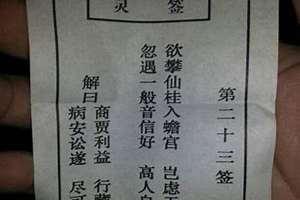 灵
签
第二十三签
欲攀仙桂入蟾宫 岂虑天
忽遇一般音信好 高人自
解曰 商贾利益 行藏
病安讼遂 尽可